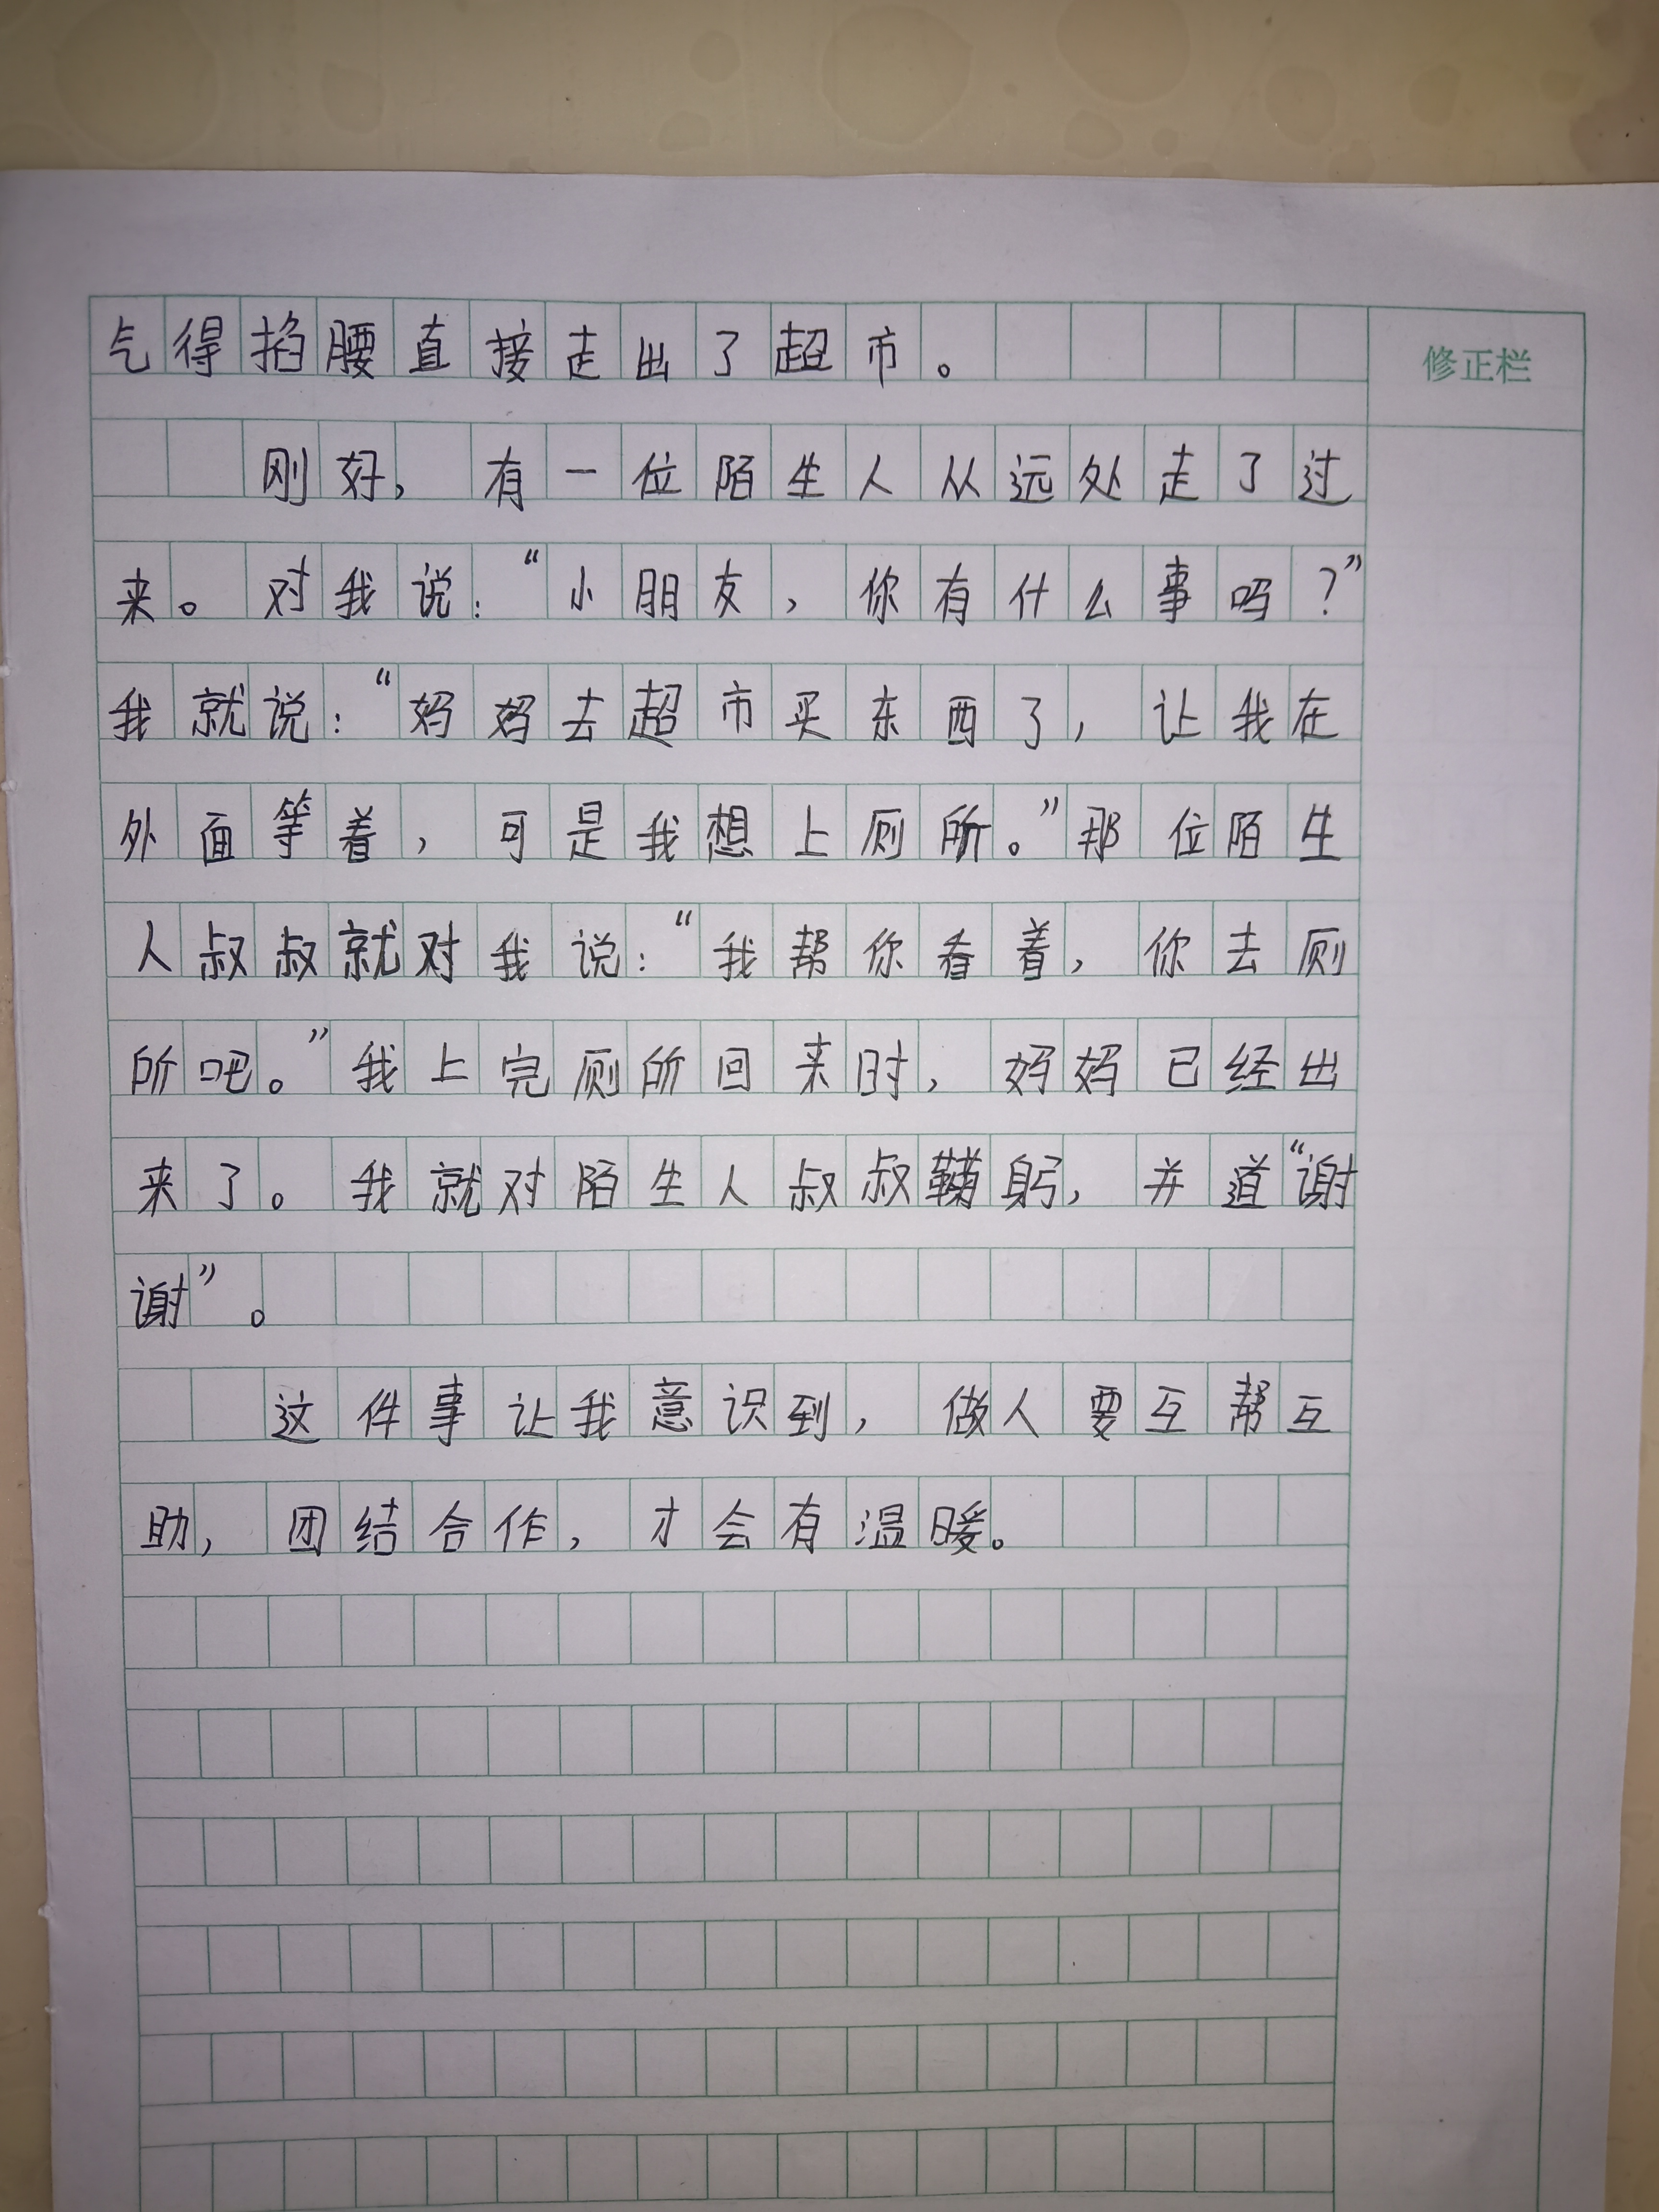 气得掐腰直接走出了超市。
修正栏
刚好，有一位陌生人从远处走了过
来。对我说：“小朋友，你有什么事吗？”
我就说：“妈妈去超市买东西了，让我在
外面等着，可是我想上厕所。”那位陌生
人叔叔就对我说：“我帮你看着，你去厕
所吧。”我上完厕所回来时，妈妈已经出
来了。我就对陌生人叔叔鞠躬，并道“谢
谢”。
这件事让我意识到，做人要互帮互
助，团结合作，才会有温暖。